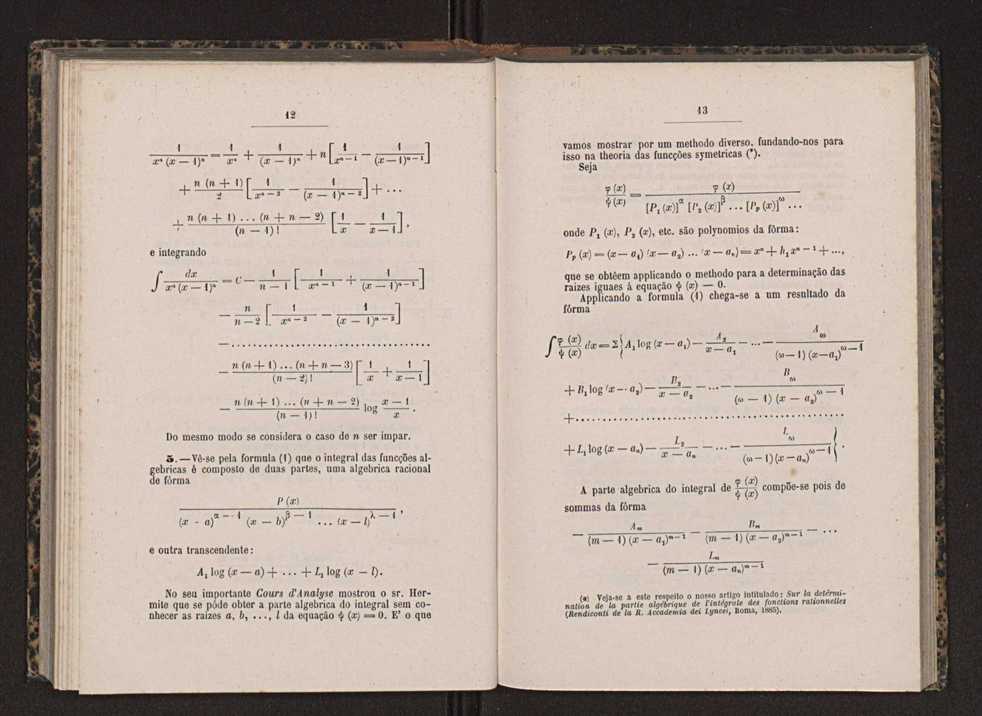 12
1/(xⁿ (x — 1)ⁿ) = 1/xⁿ + 1/(x — 1)ⁿ + n [ 1/xⁿ⁻¹ — 1/(x—1)ⁿ⁻¹ ]
+ n (n + 1)/2 [ 1/xⁿ⁻² — 1/(x — 1)ⁿ⁻² ] + ...
+ n (n + 1) ... (n + n — 2)/(n — 1)! [ 1/x — 1/(x — 1) ],
e integrando
∫ dx/(xⁿ (x — 1)ⁿ) = C — 1/(n — 1) [ 1/xⁿ⁻¹ + 1/(x — 1)ⁿ⁻¹ ]
— n/(n—2) [ 1/xⁿ⁻² — 1/(x — 1)ⁿ⁻² ]
— ..................................
— n (n + 1) ... (n + n — 3)/(n — 2)! [ 1/x + 1/(x — 1) ]
— n (n + 1) ... (n + n — 2)/(n — 1)! log (x — 1)/x .
Do mesmo modo se considera o caso de n ser impar.
5. — Vê-se pela formula (1) que o integral das funcções al-
gebricas é composto de duas partes, uma algebrica racional
de fórma
P (x)/((x - a)^(α — 1) (x — b)^(β — 1) ... (x — l)^(λ — 1)) ,
e outra transcendente:
A₁ log (x — a) + ... + L₁ log (x — l).
No seu importante Cours d'Analyse mostrou o sr. Her-
mite que se póde obter a parte algebrica do integral sem co-
nhecer as raizes a, b, ..., l da equação ψ (x) = 0. E' o que
13
vamos mostrar por um methodo diverso, fundando-nos para
isso na theoria das funcções symetricas (*).
Seja
φ (x)/ψ (x) = φ (x)/([P₁ (x)]^α [P₂ (x)]^β ... [Pₚ (x)]^ω ...
onde P₁ (x), P₂ (x), etc. são polynomios da fòrma:
Pₚ (x) = (x — a₁) (x — a₂) ... (x — aₙ) = xⁿ + h₁xⁿ⁻¹ + ...,
que se obtêem applicando o methodo para a determinação das
raizes iguaes á equação ψ (x) — 0.
Applicando a formula (1) chega-se a um resultado da
fórma
∫ φ (x)/ψ (x) dx = Σ { A₁ log (x — a₁) — A₂/(x — a₁) — ... — A_ω/((ω — 1) (x—a₁)^(ω — 1))
+ B₁ log (x — a₂) — B₂/(x — a₂) — ... — B_ω/((ω — 1) (x — a₂)^(ω — 1))
+ ..................................................
+ L₁ log (x — aₙ) — L₂/(x — aₙ) — ... — L_ω/((ω — 1) (x — aₙ)^(ω — 1)) } .
A parte algebrica do integral de φ (x)/ψ (x) compõe-se pois de
sommas da fórma
— Aₘ/((m — 1) (x — a₁)ᵐ⁻¹) — Bₘ/((m — 1) (x — a₂)ᵐ⁻¹) — ...
— Lₘ/((m — 1) (x — aₙ)ᵐ⁻¹)
(*) Veja-se a este respeito o nosso artigo intitulado: Sur la détérmi-
nation de la partie algébrique de l'intégrale des fonctions rationnelles
(Rendiconti de la R. Accademia dei Lyncei, Roma, 1885).